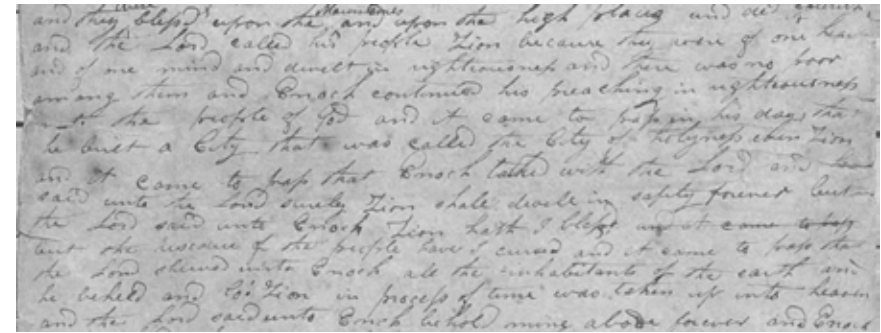 were mountains
and they blessed upon the and upon the high places and did flourish
and the Lord called his people Zion because they were of one heart
and of one mind and dwelt in righteousness and there was no poor
among them and Enoch continued his preaching in righteousness
unto the people of God and it came to pass in his days that
he built a City that was called the City of Holyness even Zion
and it came to pass that Enoch talked with the Lord and
said unto the Lord surely Zion shall dwell in safty forever but
the Lord said unto Enoch Zion hath I blest and it came to pass
but the rescidue of the people have I cursed and it came to pass that
the Lord shewed unto Enoch all the inhabitants of the earth and
he beheld and lo Zion in process of time was taken up into heaven
and the Lord said unto Enoch behold mine abode forever and Enoch